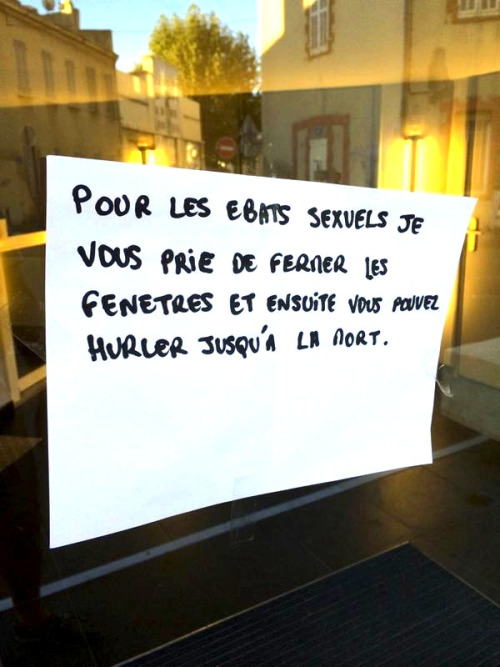 POUR LES EBATS SEXUELS JE
VOUS PRIE DE FERMER LES
FENETRES ET ENSUITE VOUS POUVEZ
HURLER JUSQU'À LA MORT.